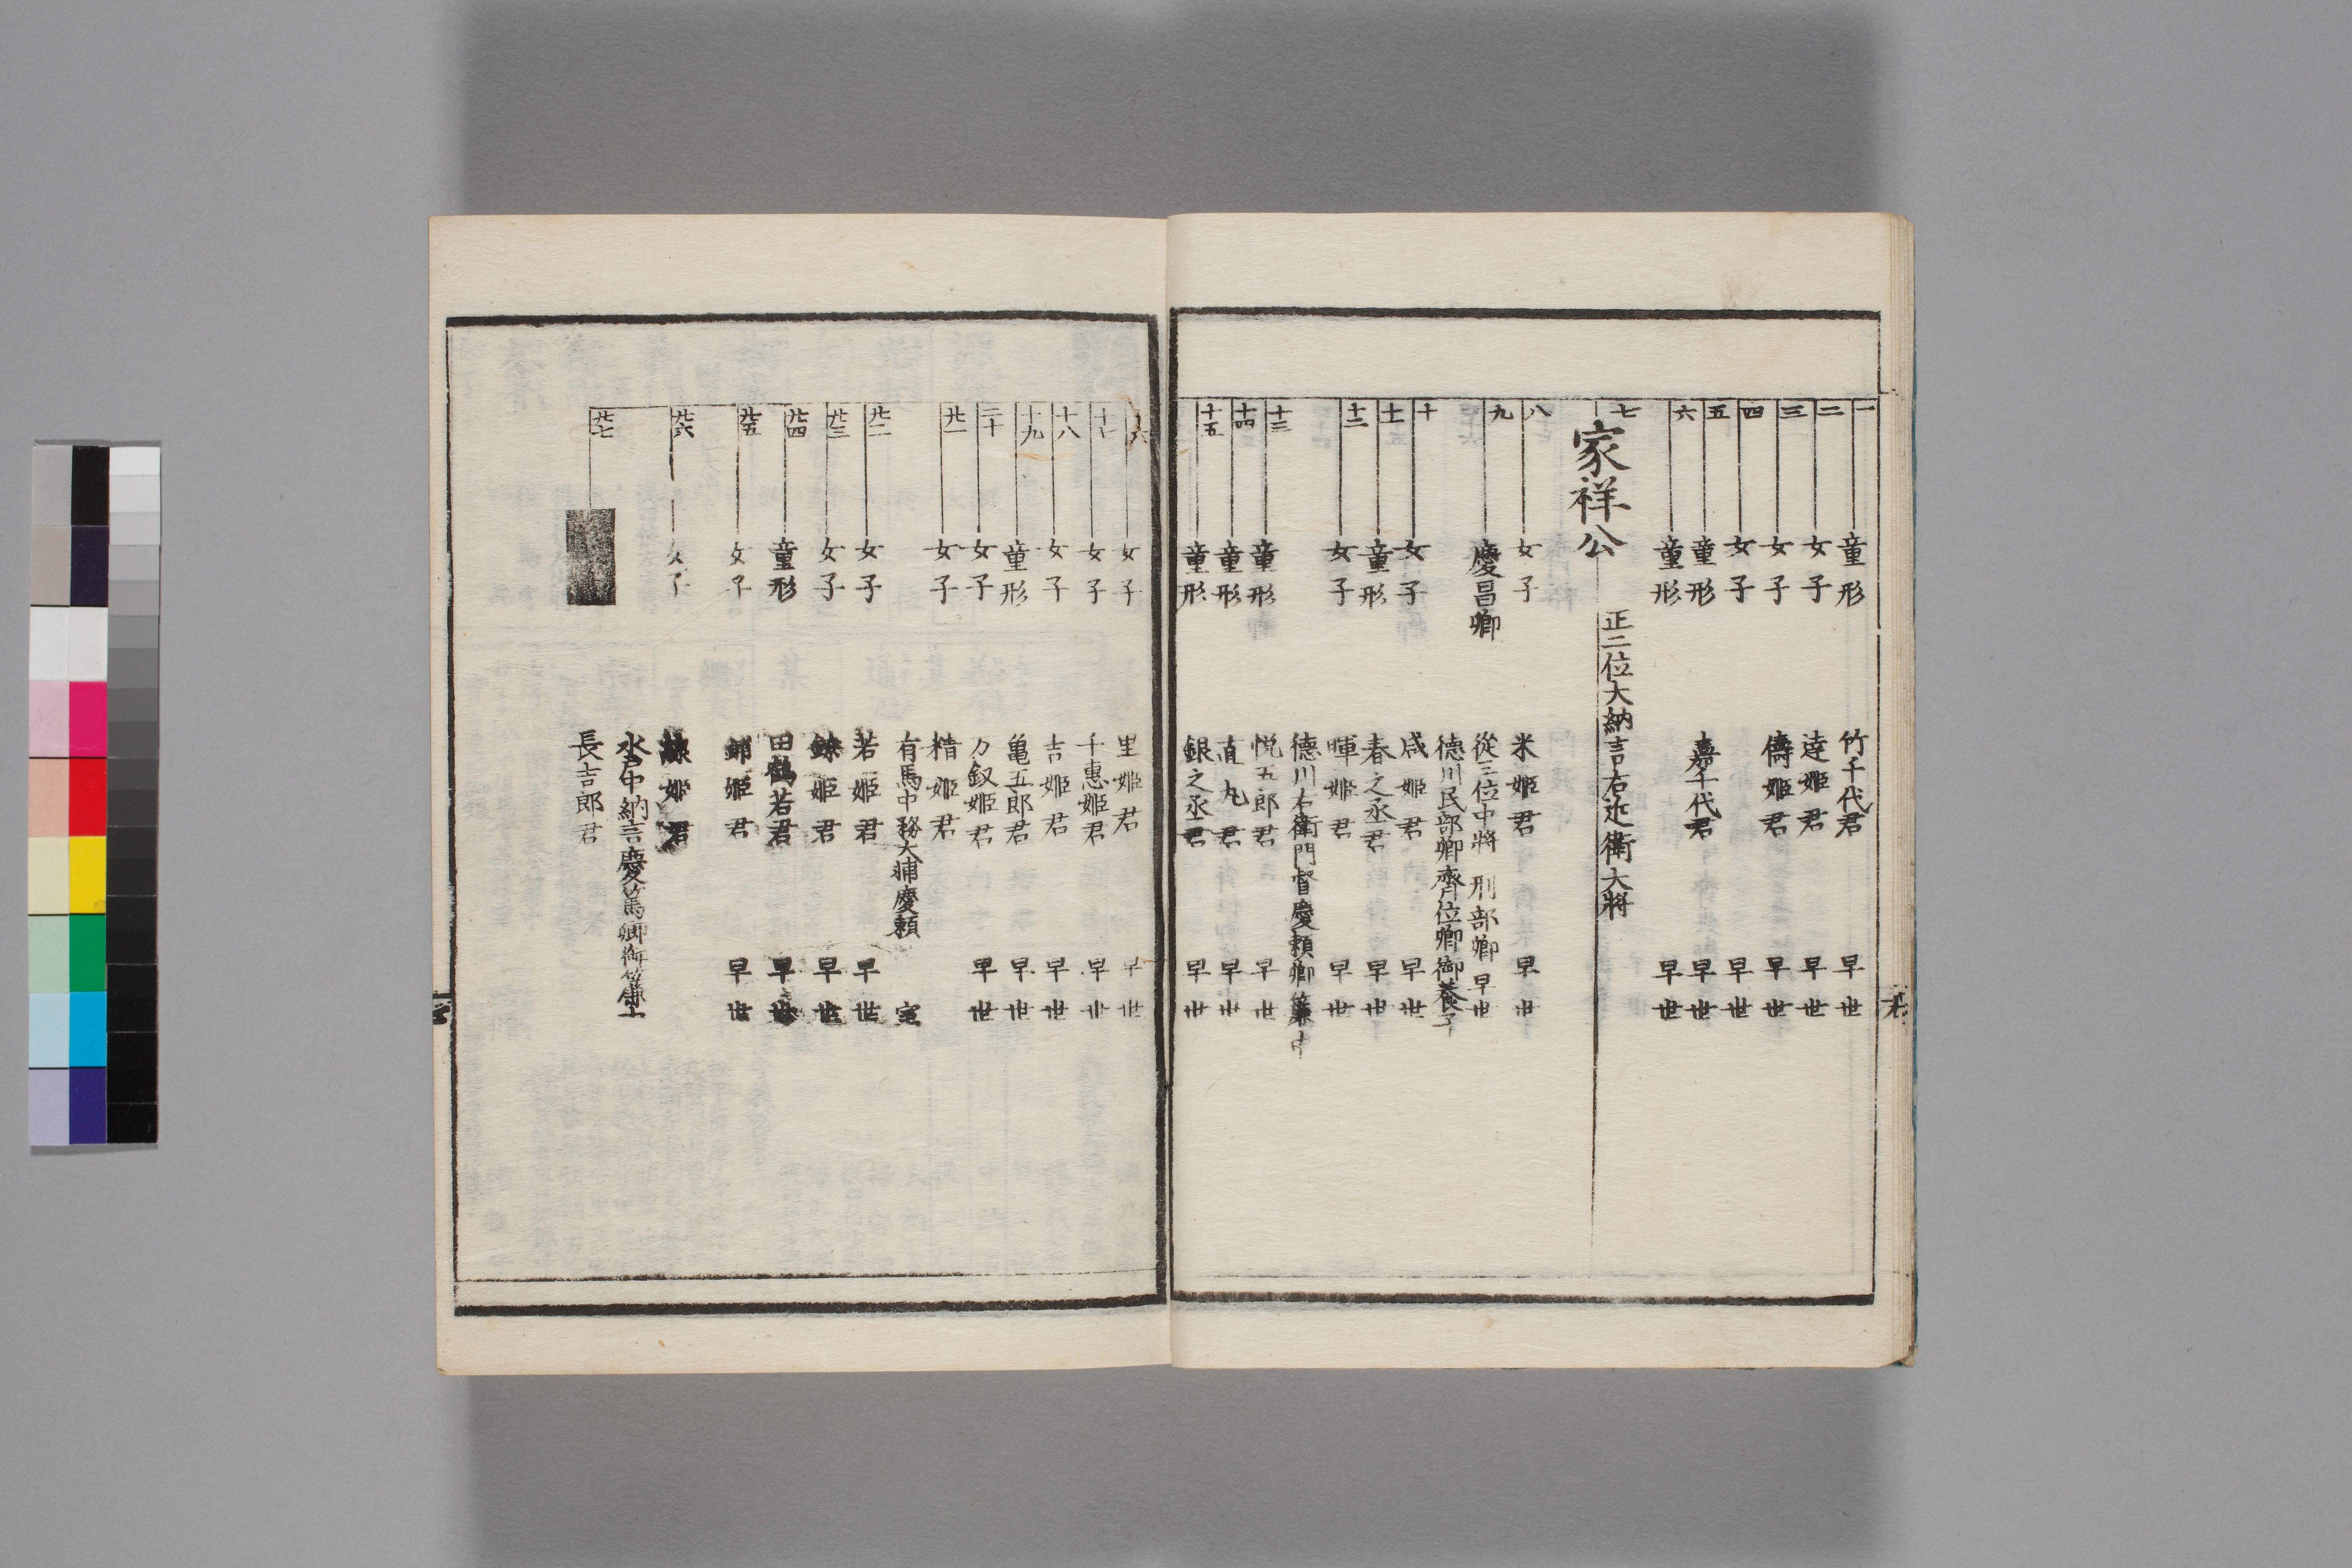 一 童形 竹千代君 早世
二 女子 達姫君 早世
三 女子 儔姫君 早世
四 女子 早世
五 童形 嘉千代君 早世
六 童形 早世
七 家祥公 正二位大納言右近衛大将
八 女子 米姫君 早世
九 慶昌卿 從三位中將 刑部卿 早世
德川民部卿齊位卿御養子
十 女子 咸姫君 早世
十一 童形 春之丞君 早世
十二 女子 暉姫君 早世
德川右衛門督慶頼卿簾中
十三 童形 悦五郎君 早世
十四 童形 直丸君 早世
十五 童形 銀之丞君 早世
六 女子 里姫君 早世
十七 女子 千惠姫君 早世
十八 女子 吉姫君 早世
十九 童形 亀五郎君 早世
二十 女子 万釵姫君 早世
廿一 女子 精姫君
有馬中務大輔慶頼 室
廿二 女子 若姫君 早世
廿三 女子 鐐姫君 早世
廿四 童形 田鶴若君 早世
廿五 女子 鋪姫君 早世
廿六 女子 線姫君
水戸中納言慶篤卿御簾中
廿七 長吉郎君